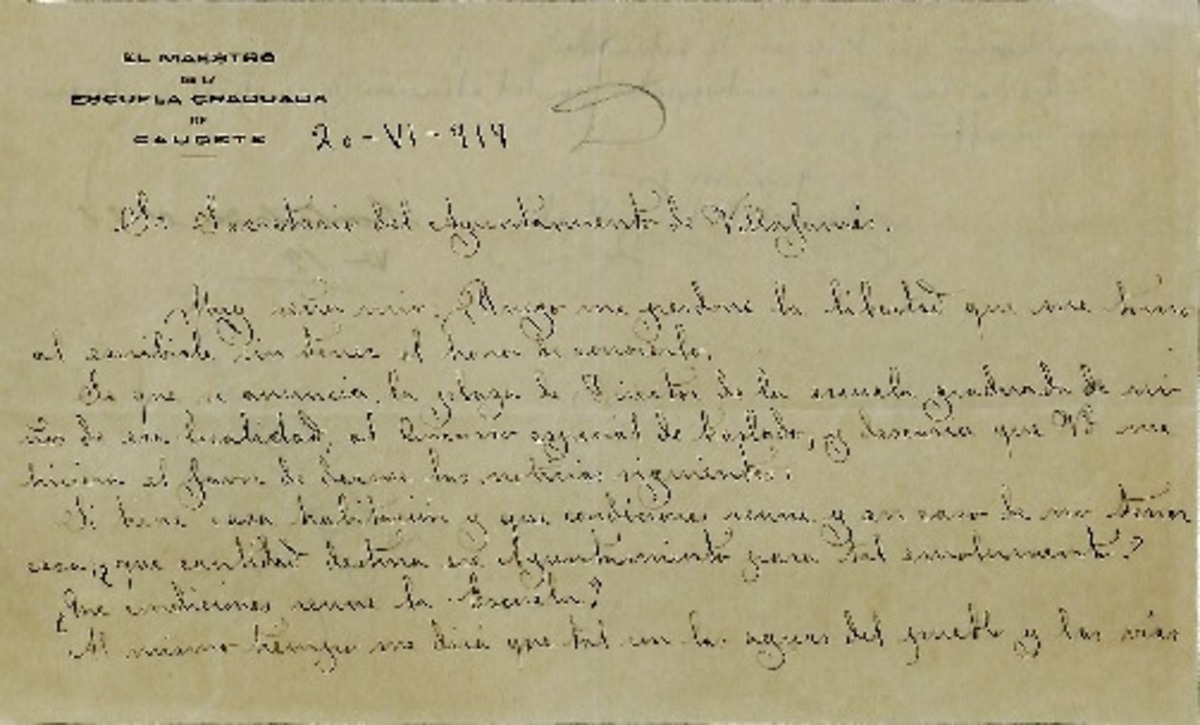 EL MAESTRO
DE LA
ESCUELA GRADUADA
DE
CAUDETE
20-VI-919
Sr Secretario del Ayuntamiento de Villafamés.
Muy señor mio, Ruego me perdone la libertad que me tomo
al escribirle sin tener el honor de conocerlo.
Se que se anuncia la plaza de Director de la escuela graduada de ni
ños de esa localidad, al Concurso especial de traslado, y desearia que Vd me
hiciera el favor de darme las noticias siguientes.
Si tiene casa habitación y que condiciones reune y en caso de no tener
casa, ¿que cantidad destina ese Ayuntamiento para tal emolumento?
¿Que condiciones reune la Escuela?
Al mismo tiempo me dirá que tal son las aguas del pueblo y las vias